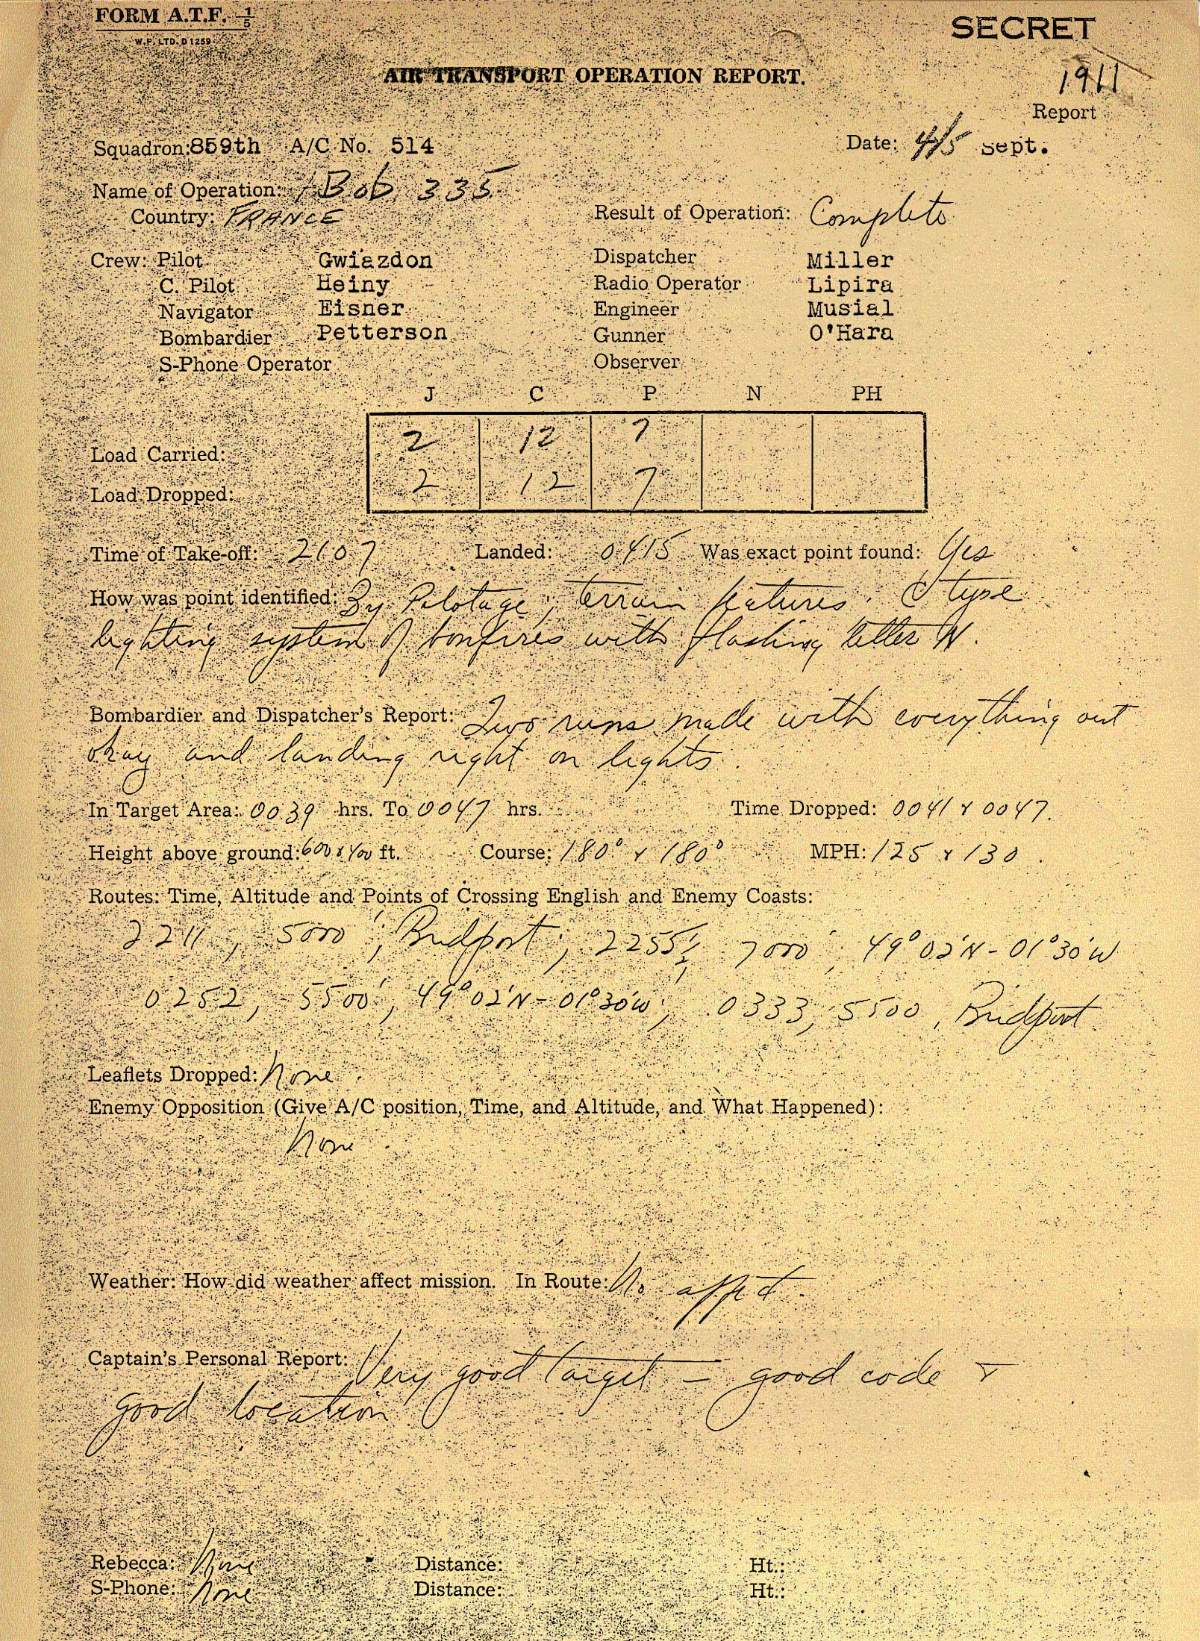 FORM A.T.F. 1/5
W.P. LTD. D 1259
SECRET
AIR TRANSPORT OPERATION REPORT.
1911
Report
Squadron: 859th A/C No. 514 Date: 4/5 Sept.
Name of Operation: Bob 335
Country: FRANCE Result of Operation: Complete
Crew: Pilot Gwiazdon Dispatcher Miller
C. Pilot Heiny Radio Operator Lipira
Navigator Eisner Engineer Musial
Bombardier Petterson Gunner O'Hara
S-Phone Operator Observer
J C P N PH
Load Carried: 2 12 7
Load Dropped: 2 12 7
Time of Take-off: 2107 Landed: 0415 Was exact point found: Yes
How was point identified: By Pilotage; terrain features. C type
lighting system of bonfires with flashing letter N.
Bombardier and Dispatcher's Report: Two runs made with everything out
okay and landing right on lights.
In Target Area: 0039 hrs. To 0047 hrs. Time Dropped: 0041 & 0047.
Height above ground: 600 & 400 ft. Course: 180° & 180° MPH: 125 & 130.
Routes: Time, Altitude and Points of Crossing English and Enemy Coasts:
2211, 5000', Bridport; 2255½, 7000', 49°02'N-01°30'W
0252, 5500', 49°02'N-01°30'W; 0333, 5500, Bridport.
Leaflets Dropped: None.
Enemy Opposition (Give A/C position, Time, and Altitude, and What Happened):
None.
Weather: How did weather affect mission. In Route: No affect.
Captain's Personal Report: Very good target - good code &
good location
Rebecca: None Distance: Ht.:
S-Phone: None Distance: Ht.: